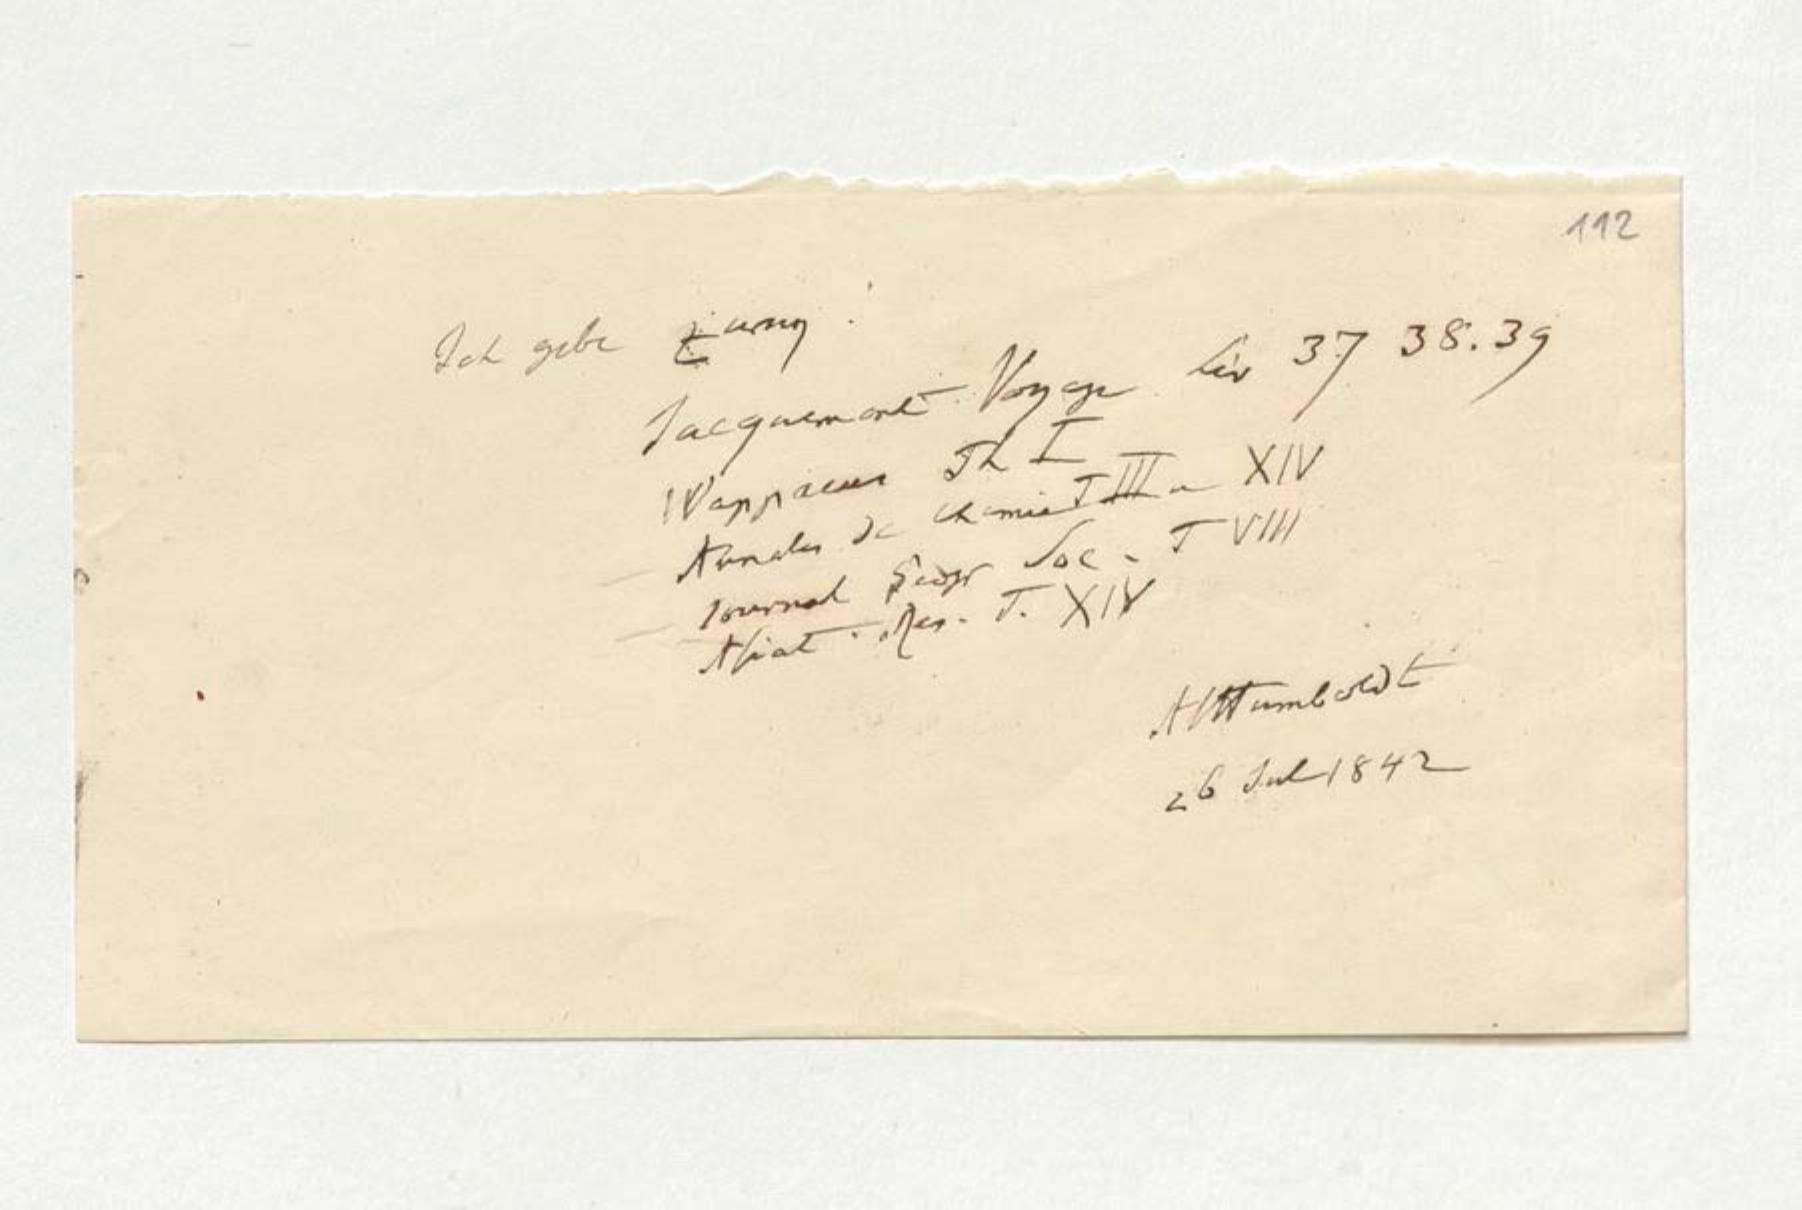 112
Ich gebe zurück:
Jacquemont Voyage Liv 37 38. 39
Wappaeus Th I
Annales de Chimie T III u XIV
Journal Geogr Soc. T VIII
Asiat. Res. T. XIV
AlHumboldt
26 Jul 1842